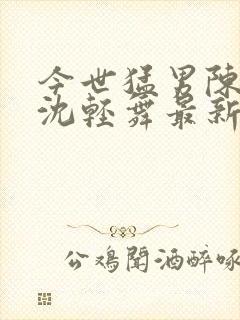 今世猛男陳
沈輕舞最新
公鸡聞酒醉啄